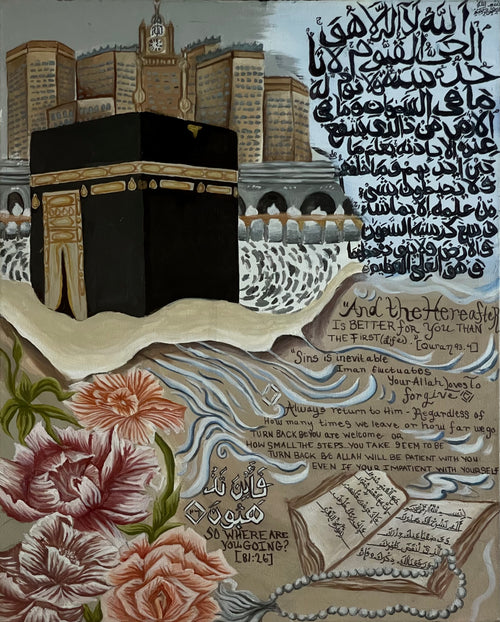 الله لا اله الا هو
الحي القيوم لا تا
خذه سنة ولا نوم له
ما في السموات وما في
الارض من ذا الذي يشفع
عنده الا باذنه يعلم ما
بين ايديهم وما خلفهم
ولا يحيطون بشئ
من علمه الا بما شاء
وسع كرسيه السموت
والارض ولا يئوده حفظهما
وهو العلي العظيم
"And the Hereafter
IS BETTER for YOU THAN
THE FIRST (life)." [Quran 93:4]
"Sins is inevitable
Iman fluctuates
Your Allah loves to
forgive
Always return to Him - Regardless of
How many times we leave or how far we go
TURN BACK YOU are welcome or
HOW SMALL THE STEPS YOU TAKE SEEM TO BE
TURN BACK ALLAH WILL BE PATIENT WITH YOU
EVEN IF YOUR IMPATIENT WITH YOURSELF
فأين تذ
هبون
SO WHERE ARE
YOU GOING?
[81:26]